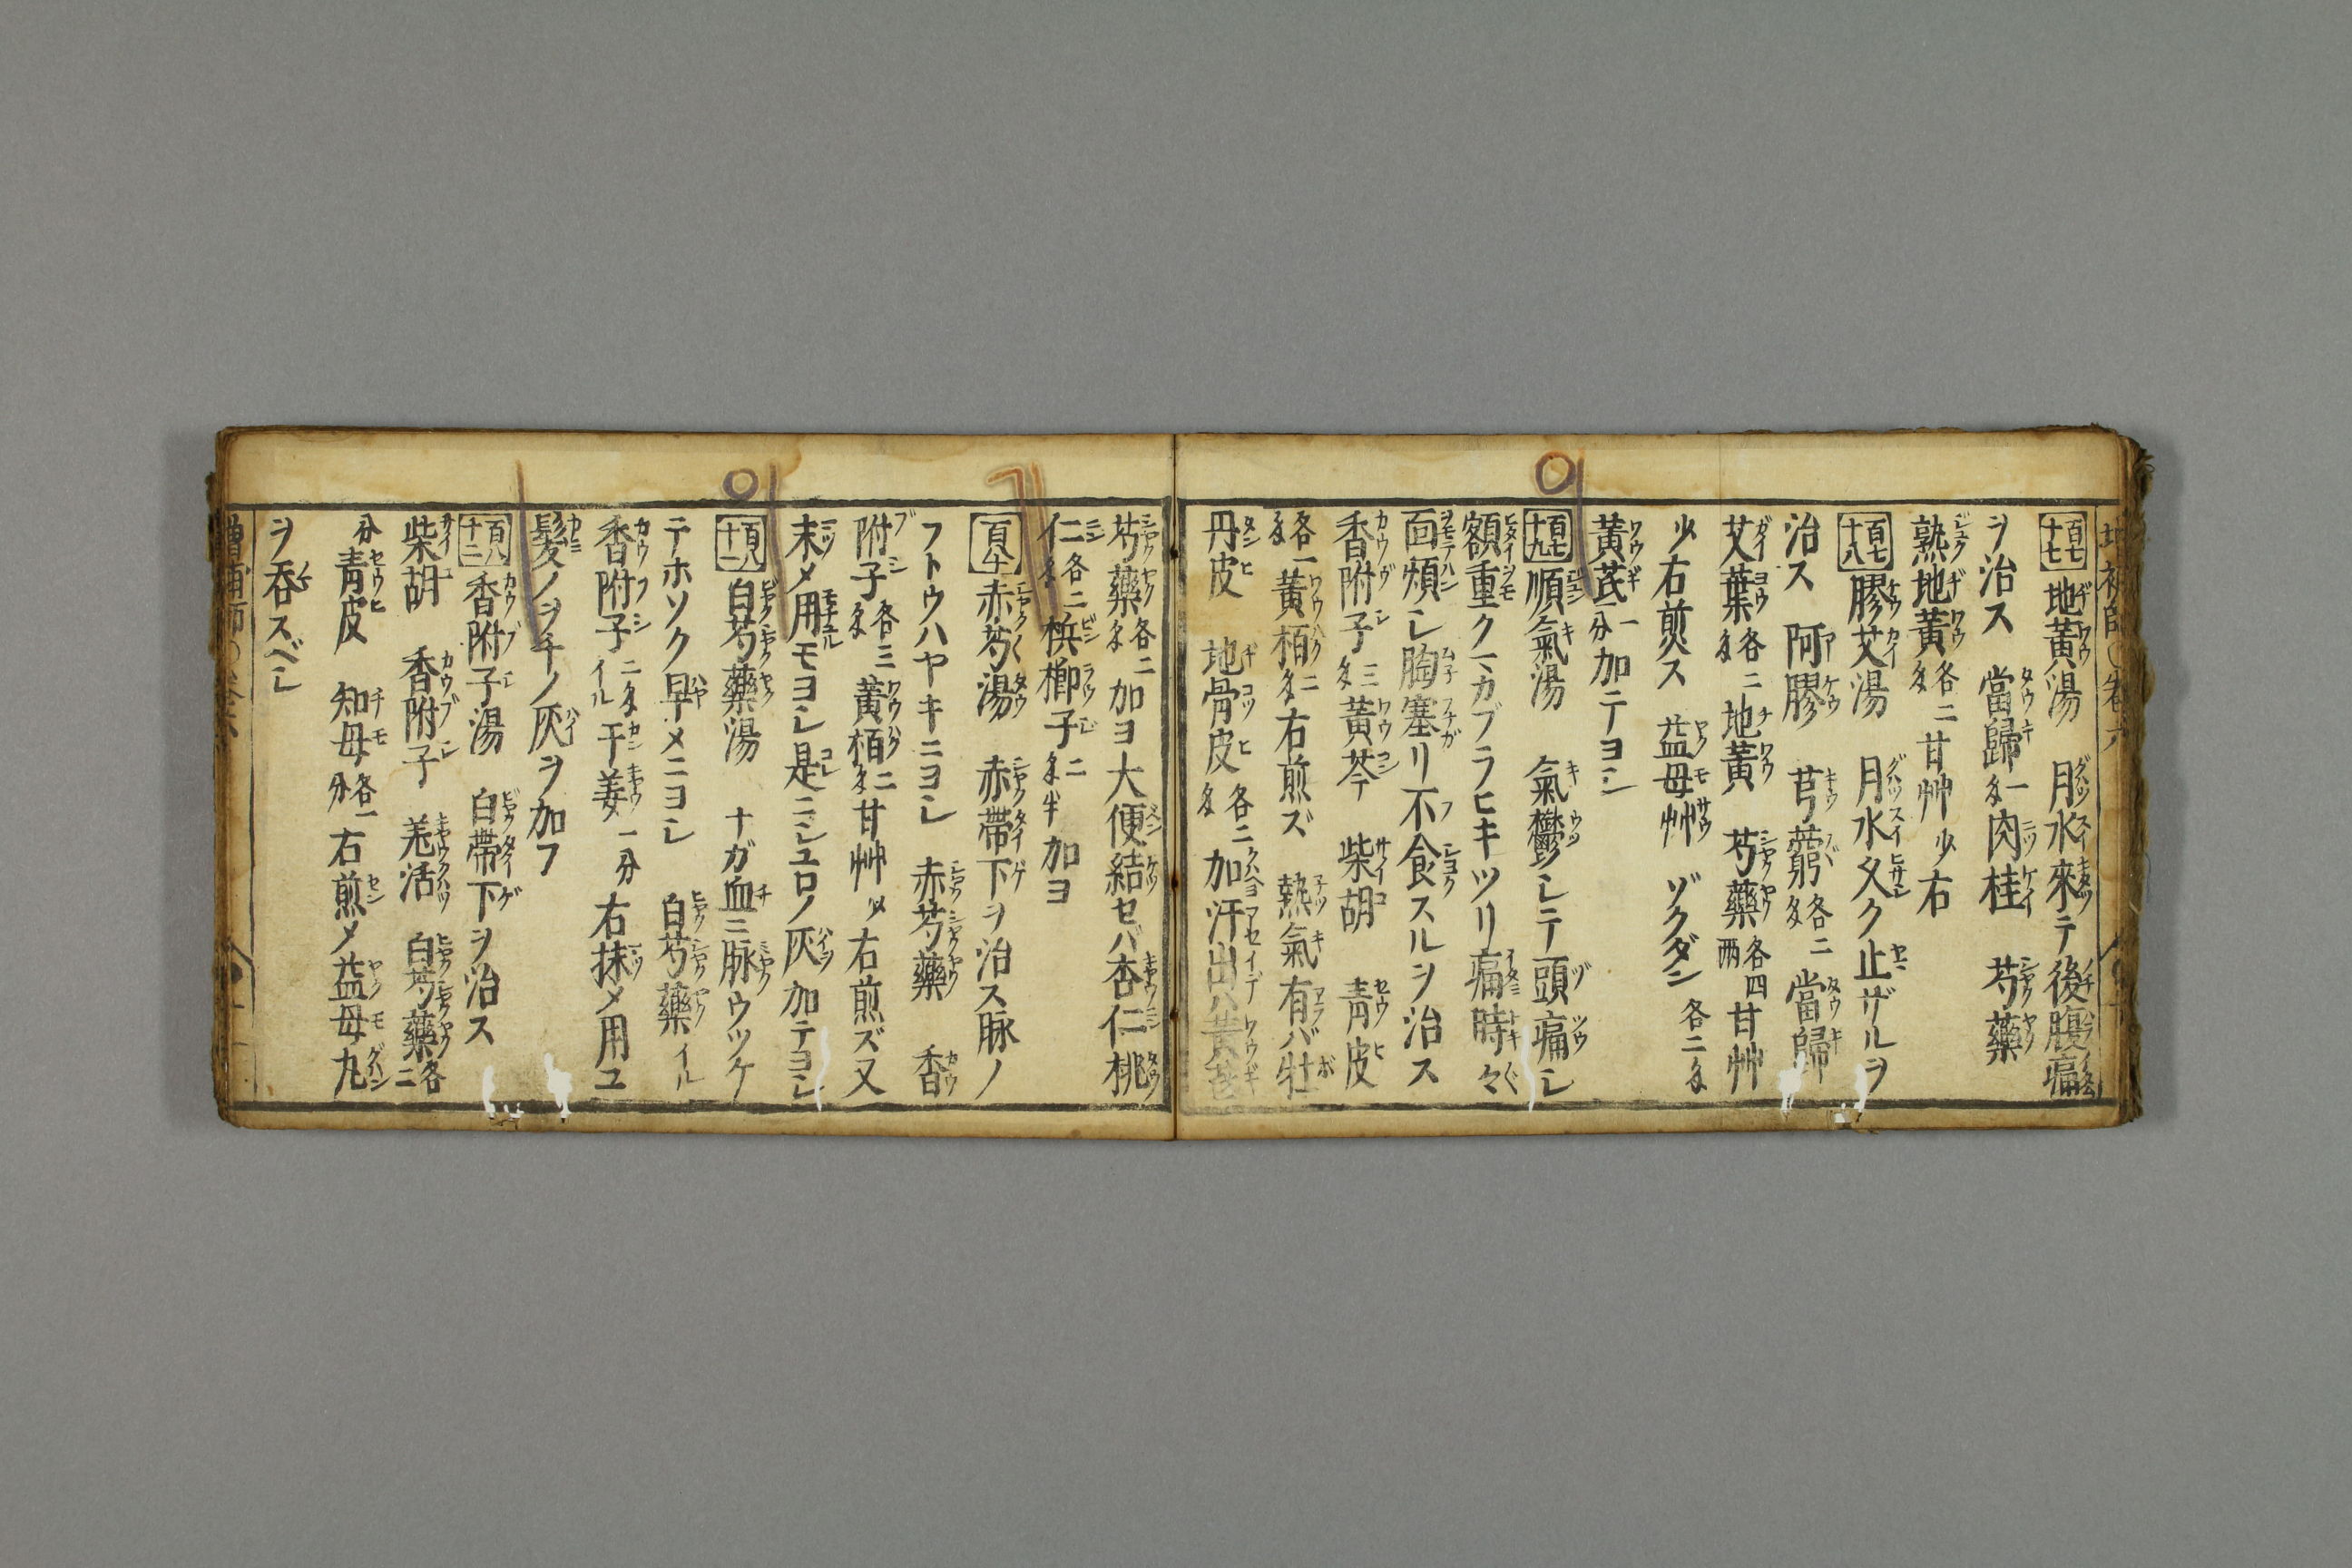 百七十七 地黄湯 月水來テ後腹痛
ヲ治ス 當歸 一匁 肉桂 芍藥
熟地黄 各二匁 甘艸 少 右
百七十八 膠艾湯 月水久ク止ザルヲ
治ス 阿膠 芎藭 各二匁 當歸
艾葉 各二匁 地黄 芍藥 各四兩 甘艸
少 右煎ス 益母艸 ゾクダン 各二匁
黄芪 一分 加テヨシ
百七十九 順氣湯 氣鬱シテ頭痛シ
額重クマカブラヒキツリ痛時々
面煩シ胸塞リ不食スルヲ治ス
香附子 三匁 黄芩 柴胡 青皮
各一匁 黄栢 二匁 右煎ズ 熱氣有バ牡
丹皮 地骨皮 各二匁 加汗出ハ黄芪
芍藥 各二匁 加ヨ大便結セバ杏仁桃
仁 各二匁 梹榔子 二匁半 加ヨ
百八十 赤芍湯 赤帶下ヲ治ス脉ノ
フトウハヤキニヨシ 赤芍藥 香
附子 各三匁 黄栢 二匁 甘艸 少 右煎ズ又
末メ用モヨシ是ニシユロノ灰加テヨシ
百八十一 白芍藥湯 ナガ血三脉ウツケ
テホソク早メニヨシ 白芍藥 イル
香附子 二匁イル 干姜 一分 右抹メ用ユ
髪ノヲチノ灰ヲ加フ
百八十二 香附子湯 白帶下ヲ治ス
柴胡 香附子 羌活 白芍藥 各二
分 青皮 知母 各一分 右煎メ益母丸
ヲ呑スベシ